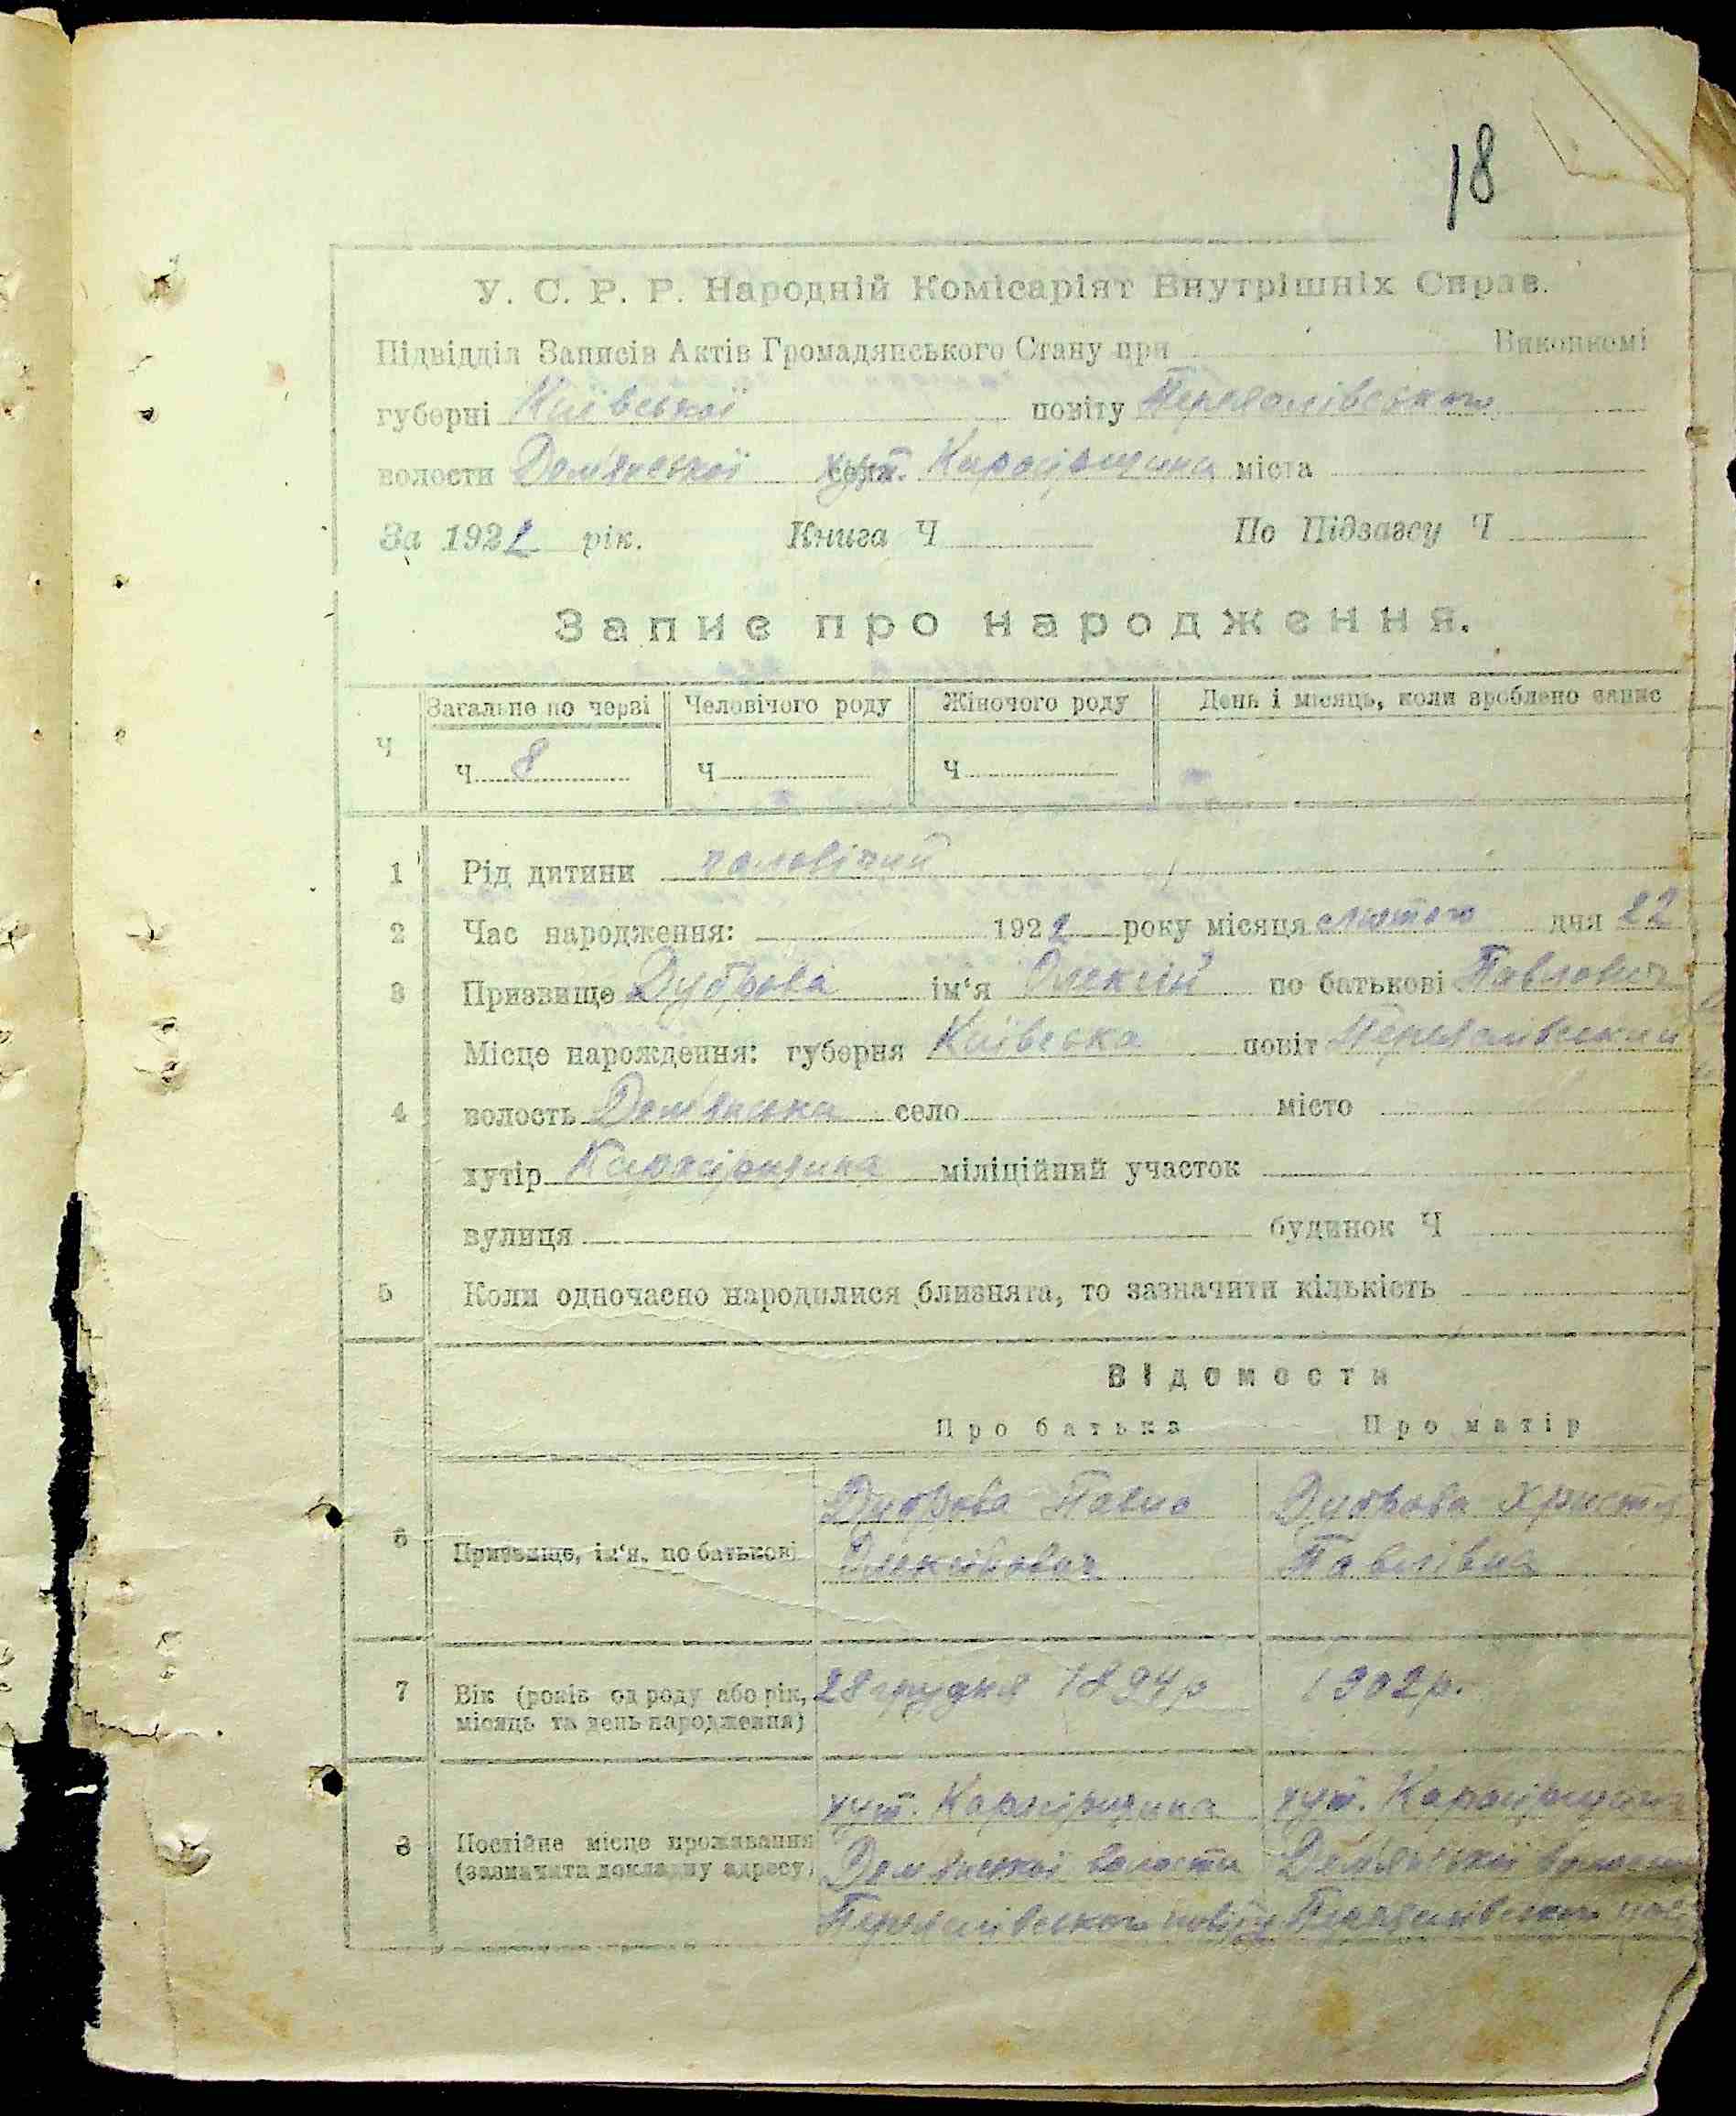 18
У. С. Р. Р. Народній Комісаріят Внутрішніх Справ.
Підвідділ Записів Актів Громадянського Стану при Виконкомі
губерні Київської повіту Переяслівського
волости Дем'янської хут. міста
За 1922 рік. Книга Ч По Підзагсу Ч
Запис про народження.
Загальне по черзі Человічого роду Жіночого роду День і місяць, коли зроблено запис
Ч Ч 8 Ч Ч
1 Рід дитини чоловічий
2 Час народження: 1922 року місяця лютого дня 22
3 Призвище Дуброва ім'я Олексій по батькові Павлович
Місце нарождення: губерня Київська повіт Переяслівський
4 волость Дем'янська село місто
хутір міліційний участок
вулиця будинок Ч
5 Коли одночасно народилися близнята, то зазначити кількість
Відомости
Про батька Про матір
6 Призвище, ім'я, по батькові Дуброва Павло Дуброва Христя
Олексійович Павлівна
7 Вік (років од роду або рік, місяць та день народження) 28 грудня 1894 р 1902 р.
8 Постійне місце проживання (зазначити докладну адресу) хут. хут.
Дем'янської волости Дем'янської волости
Переяслівського повіту Переяслівського